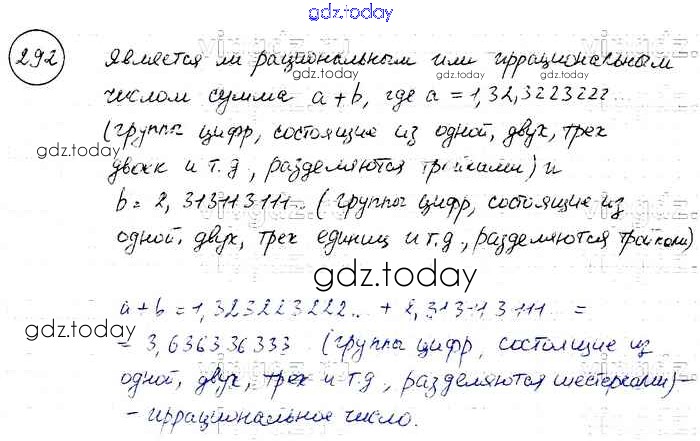 gdz.today
292 Является ли рациональным или иррациональным
gdz.today gdz.today
числом сумма a+b, где a = 1,32,3223222...
(группы цифр, состоящие из одной, двух, трех
gdz.today
двоек и т.д, разделяются тройками) и
b = 2,313113111... (группы цифр, состоящие из
одной, двух, трех единиц и т.д, разделяются тройками)
gdz.today
a+b = 1,323223222... + 2,313113111... =
= 3,636336333 (группы цифр, состоящие из
gdz.today gdz.today
одной, двух, трех и т.д, разделяются шестерками) –
– иррациональное число.